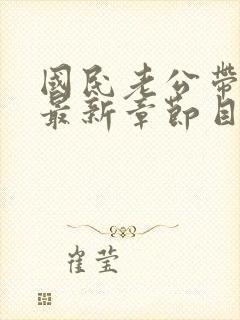 國民老公帶
最新章節目
崔莹